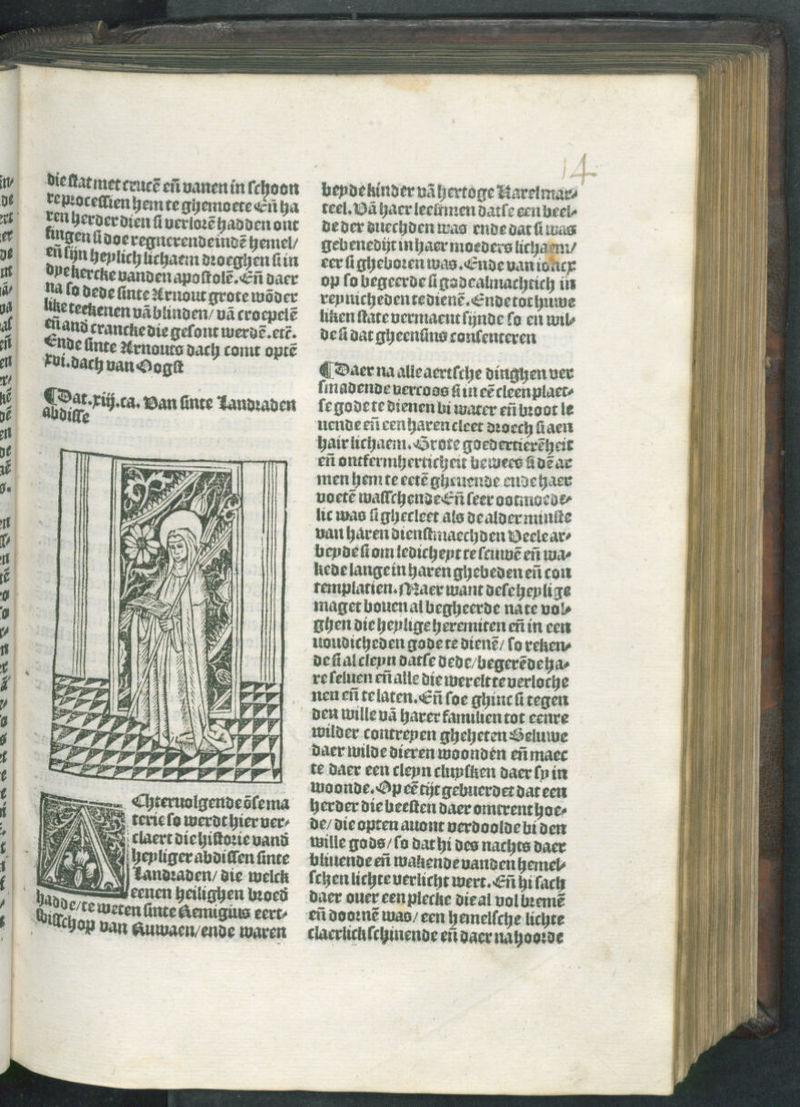 14
die stat met crucē eñ vanen in schoon
re processien hem te ghemoete Eñ ha
ren herder dien si verlorē hadden ont
fingen si doe regnerende indē hemel/
eñ sijn heylich lichaem droeghen si in
dye kercke vanden apostolē. Eñ daer
na so dede sinte Arnout grote wōder
like teekenen vā blinden/ vā croepelē
eñ and crancke die gesont werdē. etc̄.
Ende sinte Arnouts dach comt optē
xvi. dach van Oogst
¶ Dat .xiij. ca. Van sinte Landraden
abdisse
AChtervolgende ōse ma
terie so werdt hier ver-
claert die historie vand
heyliger abdissen sinte
Landraden/ die welck
eenen heilighen broed
hadde/ te weten sinte Remigius eert-
bisschop van Ruwaen/ ende waren
beyde kinder vā hertoge Karel mar-
teel. Vā haer leestmen datse een beel-
de der duechden was ende dat si was
gebenedijt in haer moeders lichaem/
eer si gheboren was. Ende van ioncx
op so begeerde si gode almachtich in
reynicheden te dienē. Ende tot huwe
liken state vermaent sijnde so en wil-
de si dat gheensins consenteren
¶ Daer na alle aertsche dinghen ver
smadende vercoos si in eē cleen plaet-
se gode te dienen bi water eñ broot le
uende eñ een haren cleet droech si aen
hair lichaem. Grote goedertierēheit
eñ ontfermherticheit bewees si dē ar
men hem te etē gheuende ende haer
voetē wasschende Eñ seer ootmoede-
lic was si ghecleet als de alder minste
van haren dienstmaechden Veele ar-
beyde si om ledicheyt te scuwē eñ wa-
kede lange in haren ghebeden eñ con
templatien. Maer want dese heylige
maget bouen al begheerde na te vol-
ghen die heylige heremiten eñ in een
uoudicheden gode te dienē/ so reken-
de si al cleyn datse dede/ begerēde ha-
re seluen eñ alle die werelt te verloche
nen eñ te laten. Eñ soe ghinc si tegen
den wille vā harer familien tot eenre
wilder contreyen gheheten Beluwe
daer wilde dieren woonden eñ maec
te daer een cleyn cluysken daer sy in
woonde. Op eē tijt gebuerdet dat een
herder die beesten daer omtrent hoe-
de/ die opten auont verdoolde bi den
wille gods/ so dat hi des nachts daer
bliuende eñ wakende vanden hemel-
schen lichte verlicht wert. Eñ hi sach
daer ouer een plecke die al vol bremē
eñ doornē was/ een hemelsche lichte
claerlick schinende eñ daer na hoorde